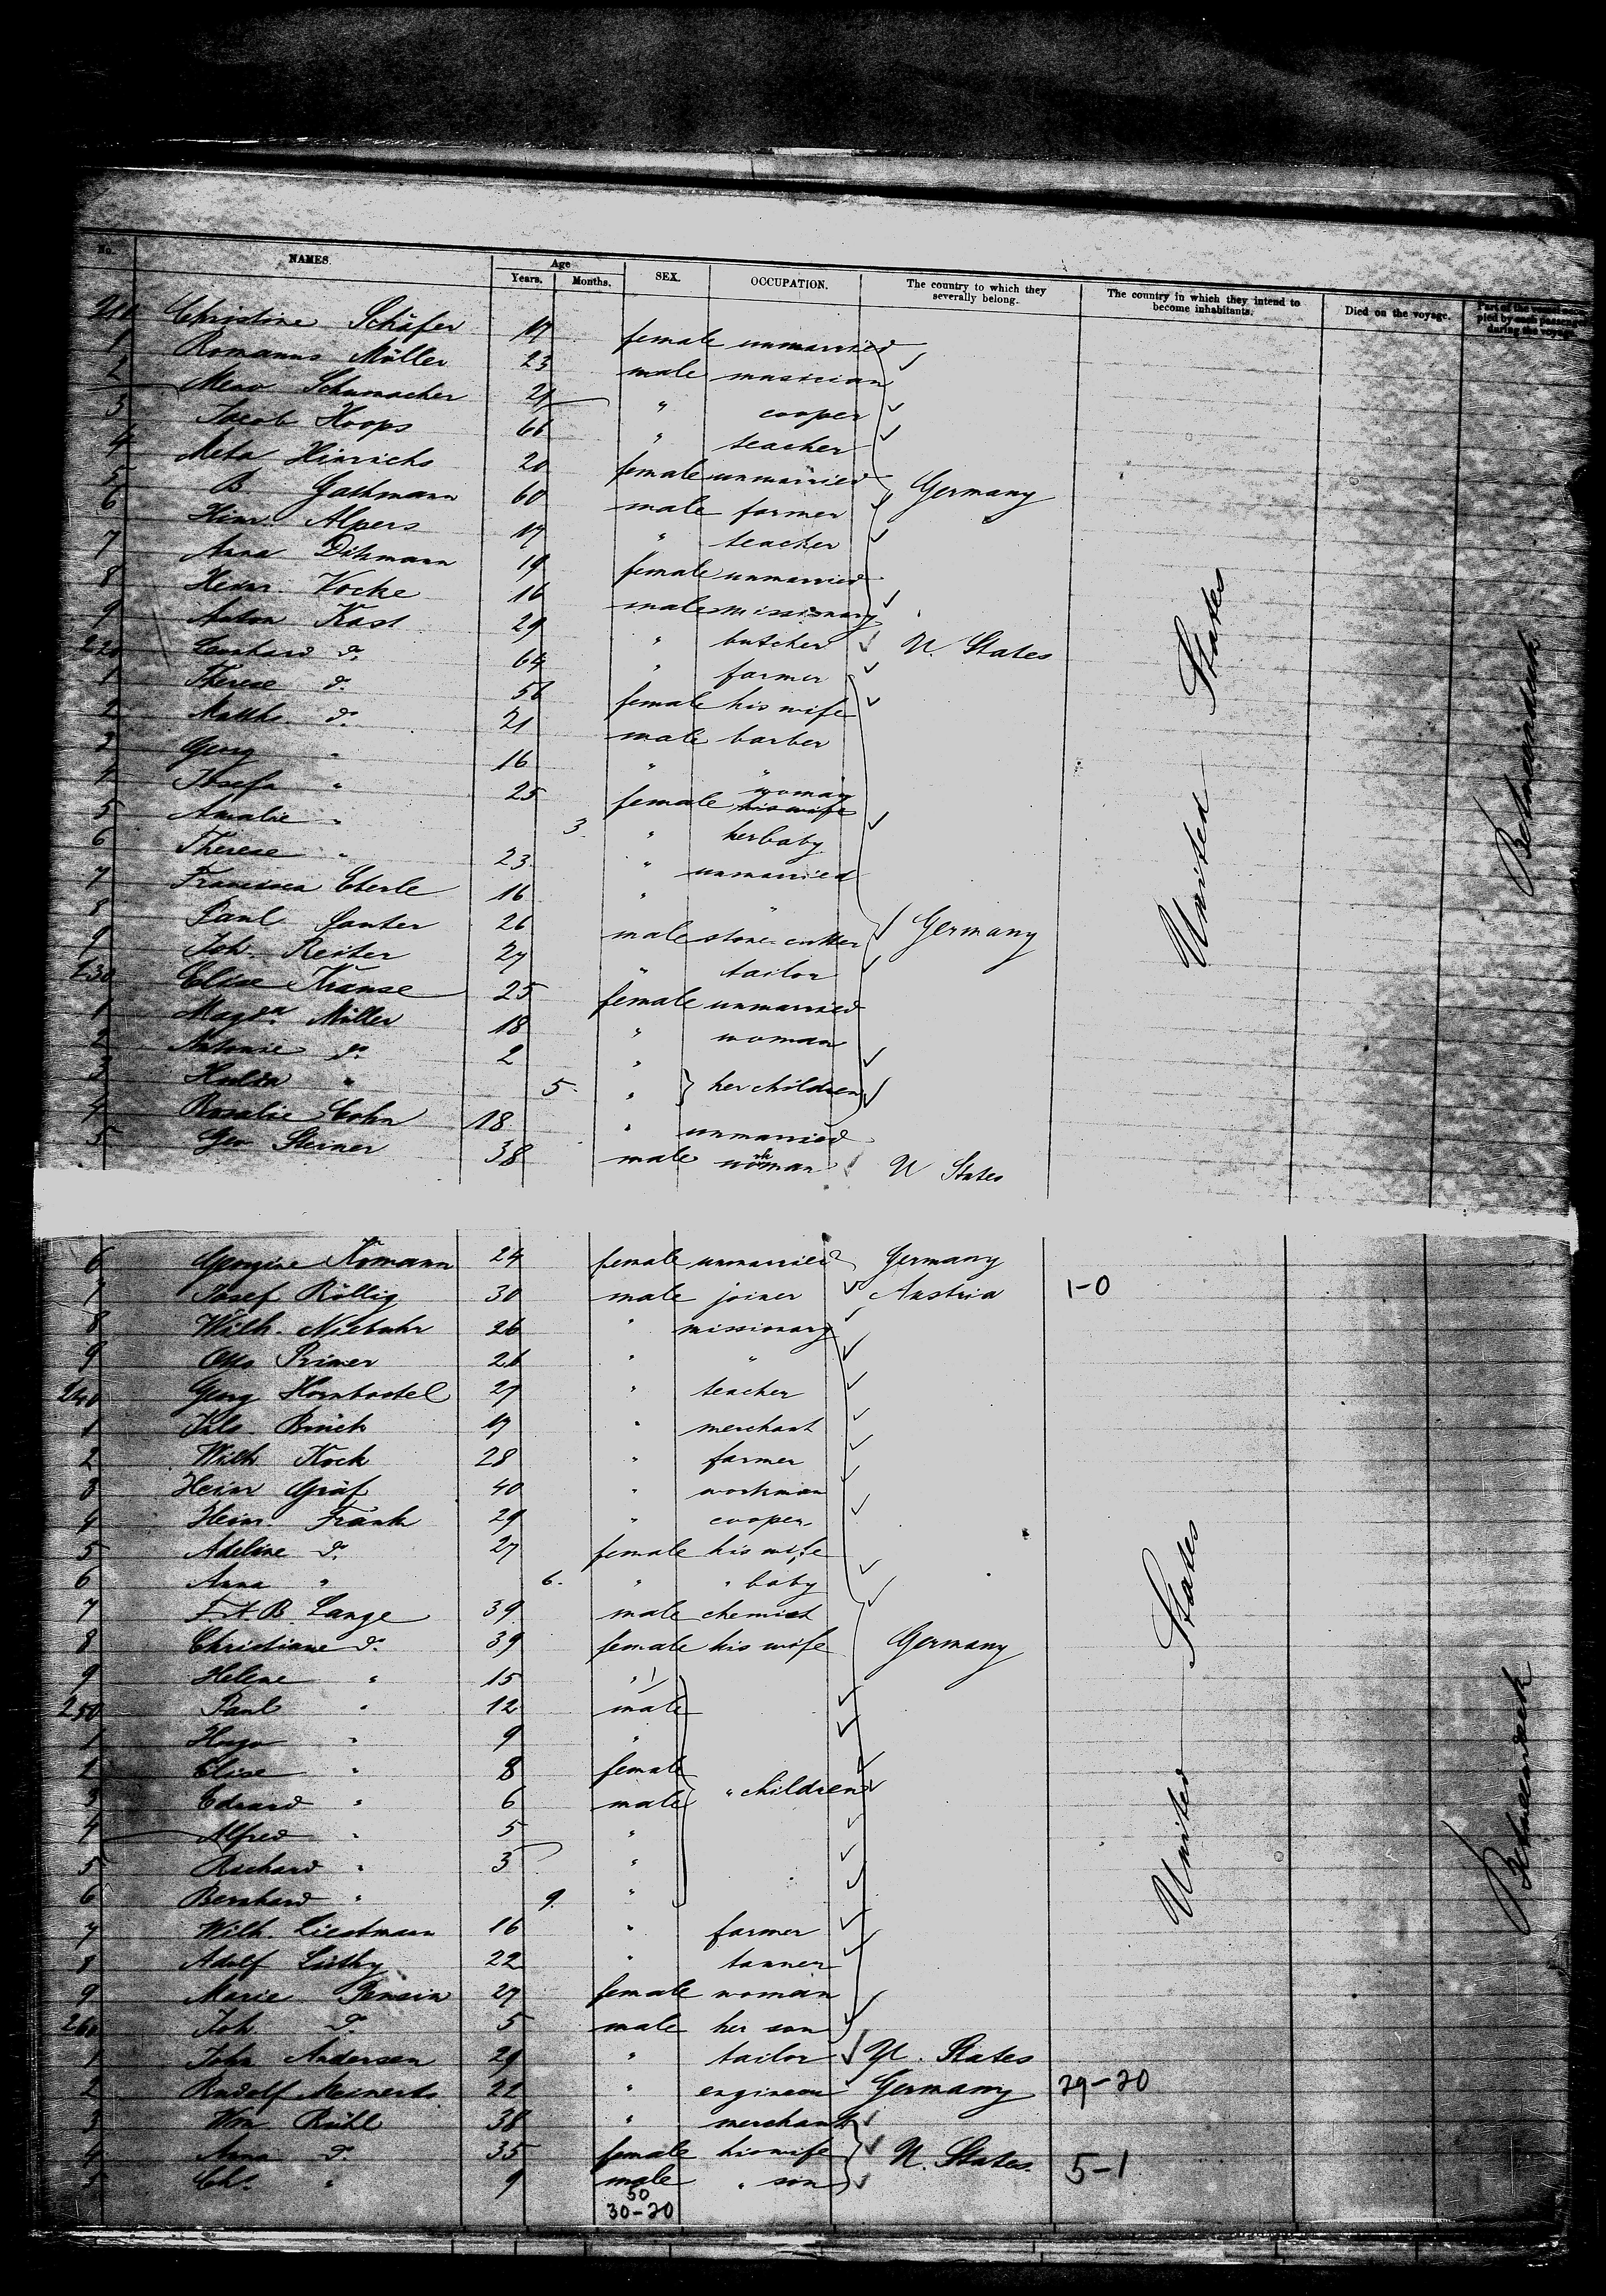 No. NAMES. Age Years. Months. SEX. OCCUPATION. The country to which they severally belong. The country in which they intend to become inhabitants. Died on the voyage. Part of the vessel occupied by each passenger during the voyage.
210 Christine Schäfer 17 female unmarried
1 Romanus Müller 23 male musician
2 Meno Schumacher 21 " cooper
3 Jacob Hoops 66 " teacher
4 Meta Hinrichs 20 female unmarried Germany
5 B. Gathmann 60 male farmer
6 Hinr. Alpers 17 " teacher
7 Anna Dihmann 19 female unmarried
8 Heinr. Vocke 16 male missionary
9 Anton Kast 29 " butcher U. States
220 Leonhard do. 64 " farmer
1 Therese do. 56 female his wife
2 Matth. do. 21 male barber
3 Georg " 16 " "
4 Josefa " 25 female his wife woman
5 Amalie " 3 " her baby
6 Therese " 23 " unmarried
7 Francisca Eberle 16 " "
8 Paul Sauter 26 male stone-cutter Germany
9 Joh. Reiter 27 " tailor
230 Elise Krause 25 female unmarried
1 Magda. Müller 18 " woman
2 Antonie do. 2 "
3 Hulda " 5 " } her children
4 Rosalie Cohn 18 " unmarried
5 Geo Steiner 38 male workman U States
United States
6 Georgine Komann 24 female unmarried Germany
7 Josef Röllig 30 male joiner Austria 1-0
8 Wilh. Niebuhr 26 " missionary
9 Otto Primer 26 " "
240 Georg Hornbostel 27 " teacher
1 17 " merchant
2 Wilh Koch 28 " farmer
3 Heinr Gräf 40 " workman
4 Heinr. Frank 29 " cooper
5 Adeline do. 27 female his wife
6 Anna " 6 " " baby
7 F. A. B. Lange 39 male chemist
8 Christiane do. 39 female his wife Germany
9 Helene " 15 "
250 Paul " 12 male
1 Hugo " 9 "
2 Elise " 8 female
3 Edward " 6 male " children
4 Alfred " 5 "
5 Richard " 3 "
6 Bernhard " 9 "
7 Wilh. Liestmann 16 " farmer
8 Adolf Lüthy 22 " tanner
9 Marie 27 female woman
260 Joh. do. 5 male her son
1 John Andersen 29 " tailor U. States
2 Rudolf Meinerts 22 " engineer Germany 29-20
3 Wm Rühl 38 " merchant
4 Anna do. 35 female his wife U. States. 5-1
5 Ch. " 9 male " son
50
30-20
United States